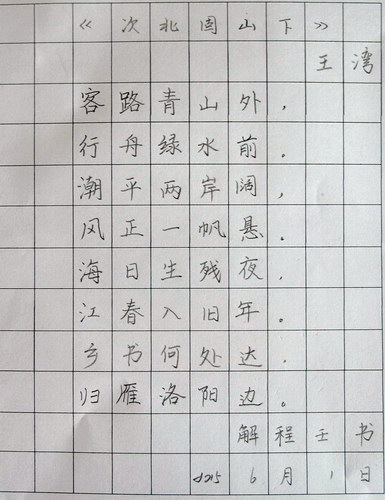 《次北固山下》
王湾
客路青山外，
行舟绿水前。
潮平两岸阔，
风正一帆悬。
海日生残夜，
江春入旧年。
乡书何处达.
归雁洛阳边。
解程壬书
2015 6月1日